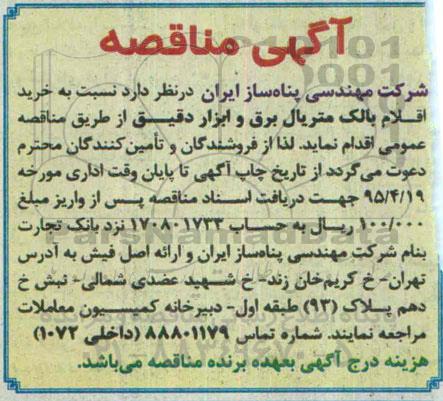 آگهی مناقصه
شرکت مهندسی پناه‌ساز ایران درنظر دارد نسبت به خرید
اقلام بالک متریال برق و ابزار دقیق از طریق مناقصه
عمومی اقدام نماید. لذا از فروشندگان و تأمین‌کنندگان محترم
دعوت می‌گردد از تاریخ چاپ آگهی تا پایان وقت اداری مورخه
۹۵/۴/۱۹ جهت دریافت اسناد مناقصه پس از واریز مبلغ
۱۰۰/۰۰۰ ریال به حساب ۱۷۰۸۰۱۷۳۳ نزد بانک تجارت
بنام شرکت مهندسی پناه‌ساز ایران و ارائه اصل فیش به آدرس
تهران- خ کریم‌خان زند- خ شهید عضدی شمالی- نبش خ
دهم پلاک (۹۳) طبقه اول- دبیرخانه کمیسیون معاملات
مراجعه نمایند. شماره تماس ۸۸۸۰۱۱۷۹ (داخلی ۱۰۷۲)
هزینه درج آگهی بعهده برنده مناقصه می‌باشد.